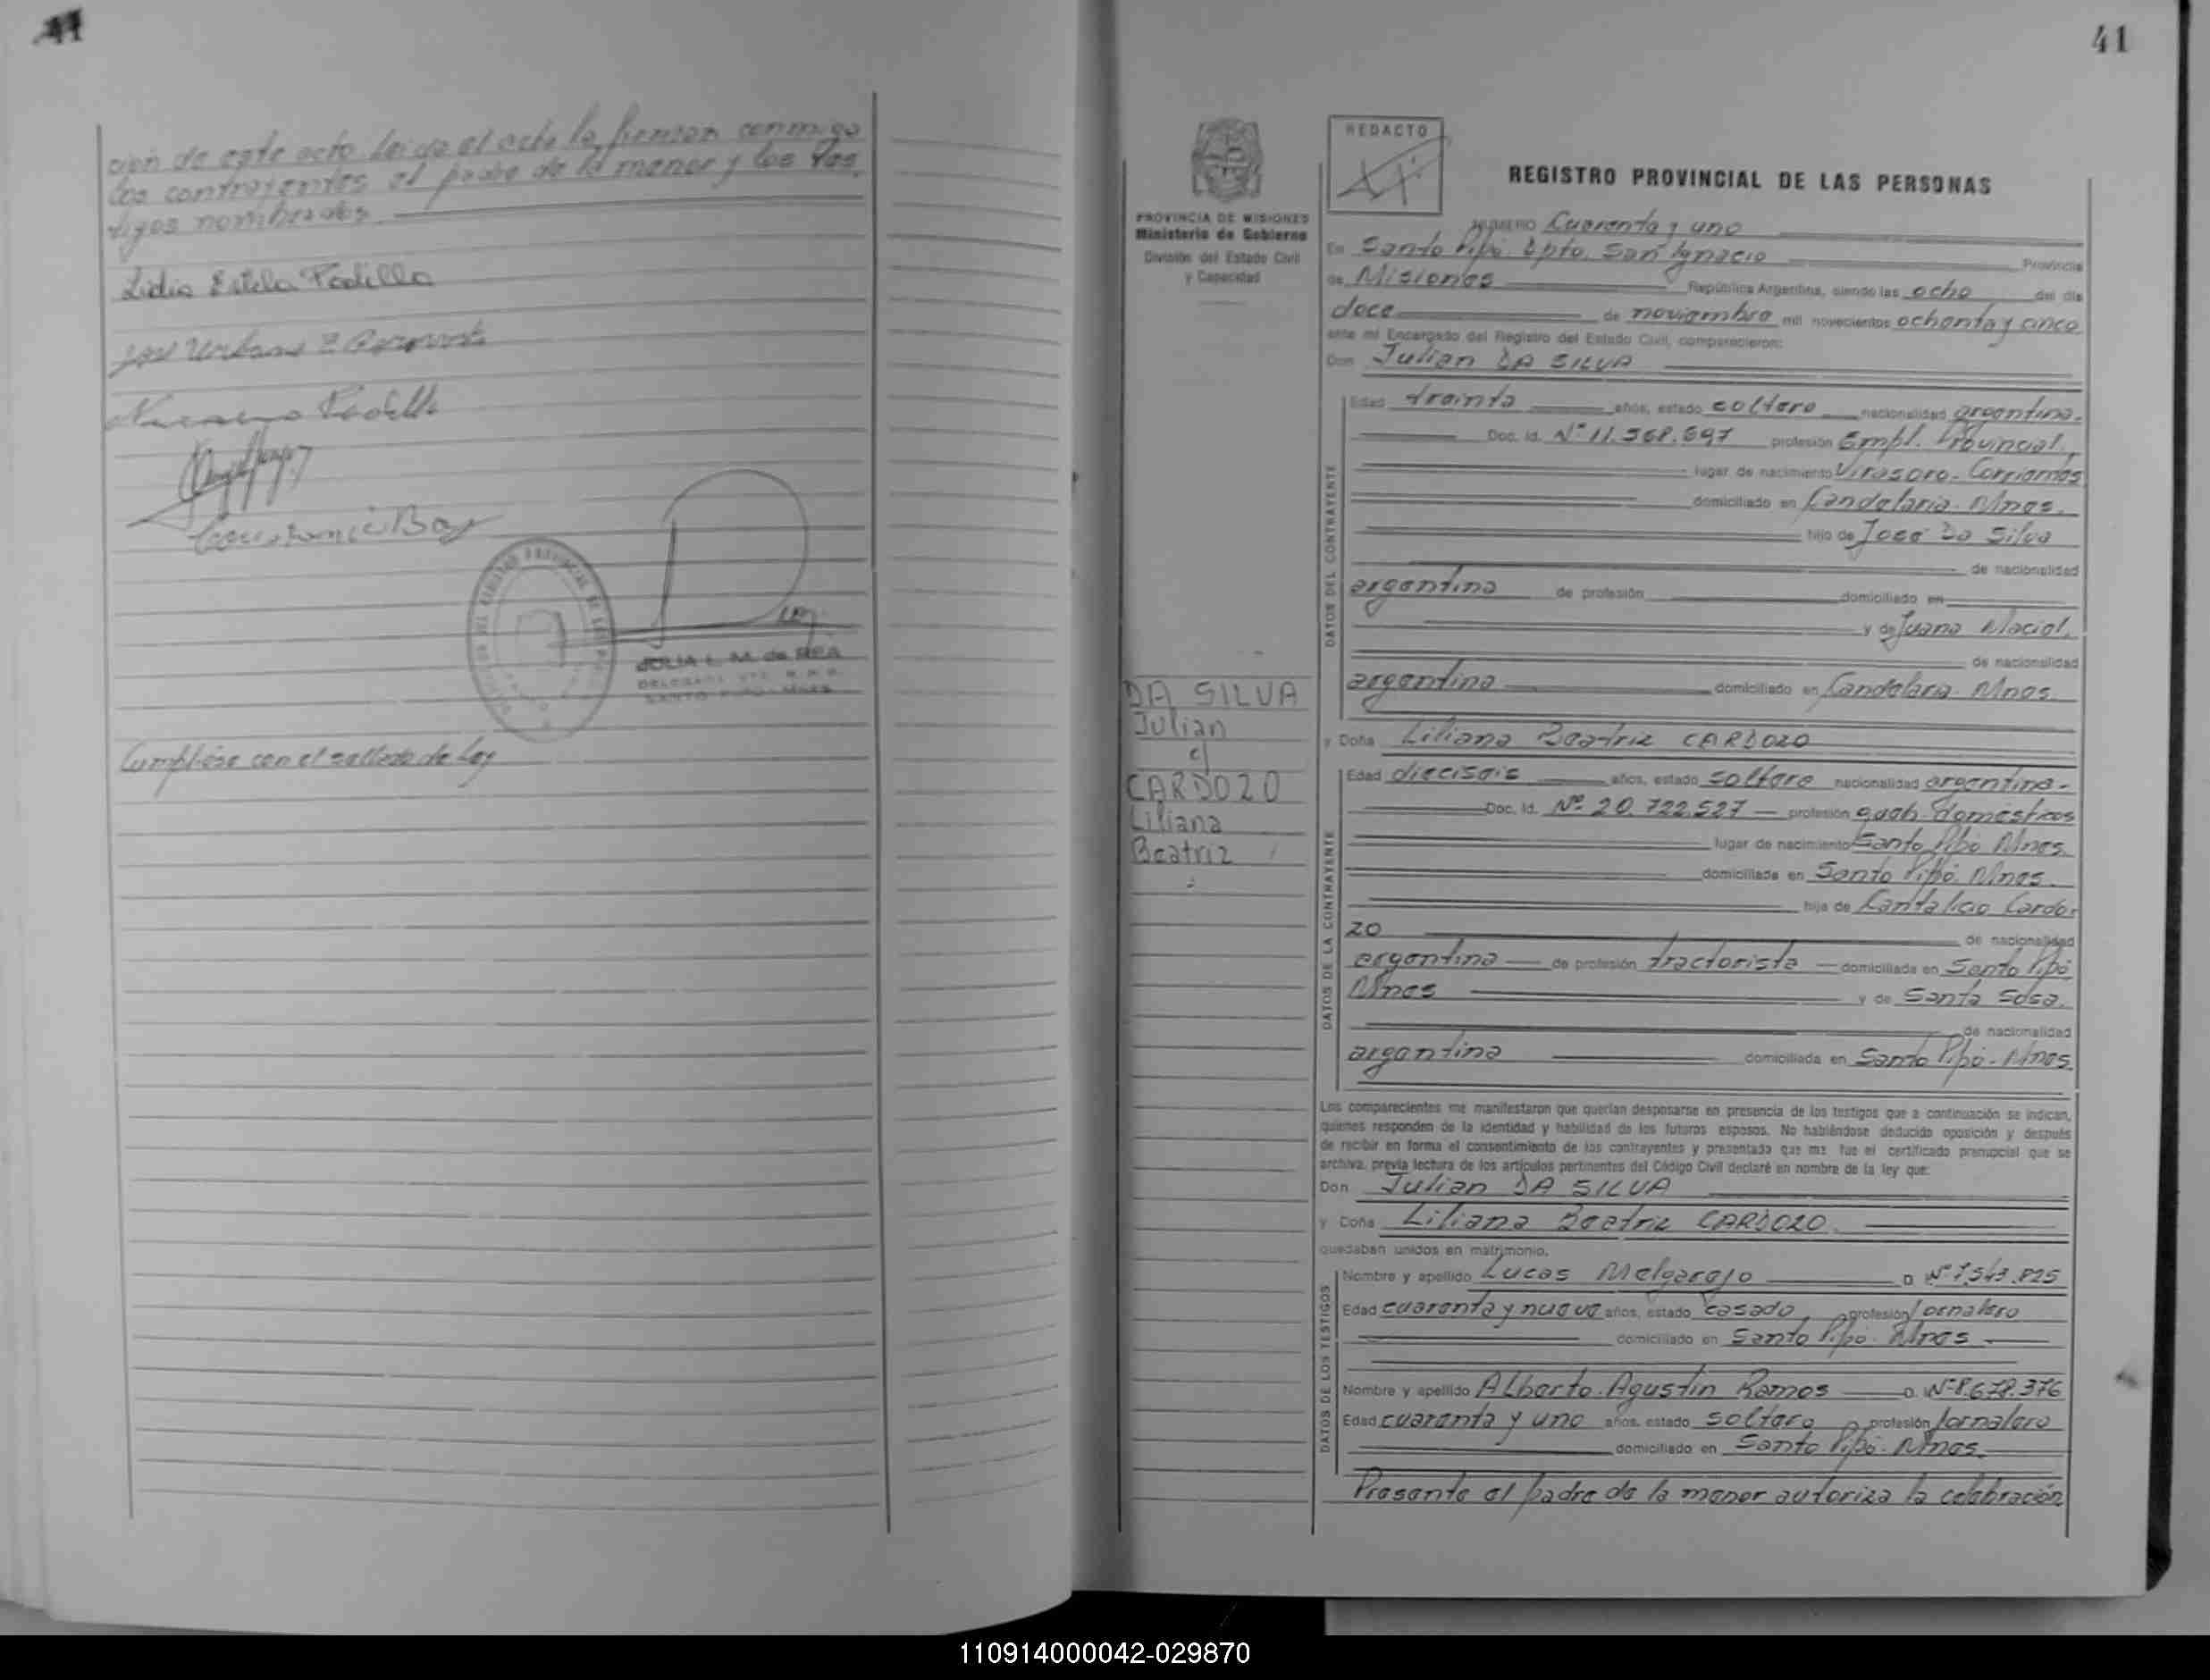 ción de este acto. Leída el acta la firman conmigo
los contrayentes el padre de la menor y los tes-
tigos nombrados
Lidia Estela Padilla
José Urbano
Padilla
Bay
JULIA L. M. de REA
DELEGADA
SANTO PIPO - MNES
Cumplese con el sellado de Ley
41
PROVINCIA DE MISIONES
Ministerio de Gobierno
División del Estado Civil
y Capacidad
DA SILVA
Julian
c/
CARDOZO
Liliana
Beatriz
REDACTO
REGISTRO PROVINCIAL DE LAS PERSONAS
NUMERO Cuarenta y uno
En Santo Pipó. Dpto. San Ignacio Provincia
de Misiones República Argentina, siendo las ocho del día
doce de noviembre mil novecientos ochenta y cinco
ante mí Encargado del Registro del Estado Civil, comparecieron:
Don Julian DA SILVA
DATOS DEL CONTRAYENTE
Edad treinta años, estado soltero nacionalidad argentina.
Doc. Id. Nº 11.568.697 profesión Empl. Provincial,
lugar de nacimiento Virasoro. Corrientes
domiciliado en Candelaria. Mnes.
hijo de José Da Silva
de nacionalidad
argentina de profesión domiciliado en
y de Juana Maciel,
de nacionalidad
argentina domiciliado en Candelaria. Mnes.
y Doña Liliana Beatriz CARDOZO
DATOS DE LA CONTRAYENTE
Edad dieciseis años, estado soltera nacionalidad argentina-
Doc. Id. Nº 20.722.527 - profesión queh. domésticos
lugar de nacimiento Santo Pipó Mnes.
domiciliada en Santo Pipó. Mnes.
hija de Cantalicio Cardo-
zo de nacionalidad
argentina - de profesión tractorista - domiciliada en Santo Pipó
Mnes y de Santa Sosa.
de nacionalidad
argentina domiciliada en Santo Pipó - Mnes.
Los comparecientes me manifestaron que querían desposarse en presencia de los testigos que a continuación se indican,
quienes responden de la identidad y habilidad de los futuros esposos. No habiéndose deducido oposición y después
de recibir en forma el consentimiento de los contrayentes y presentado que me fue el certificado prenupcial que se
archiva, previa lectura de los artículos pertinentes del Código Civil declaré en nombre de la ley que:
Don Julian DA SILVA
y Doña Liliana Beatriz CARDOZO.
quedaban unidos en matrimonio.
DATOS DE LOS TESTIGOS
Nombre y apellido Lucas Melgarejo D. Nº 7.543.825
Edad cuarenta y nueve años, estado casado profesión Jornalero
domiciliado en Santo Pipó. Mnes
Nombre y apellido Alberto Agustin Ramos D. Nº 8.678.376
Edad cuarenta y uno años, estado soltero profesión Jornalero
domiciliado en Santo Pipó. Mnes.
Presente el padre de la menor autoriza la celebración
110914000042-029870